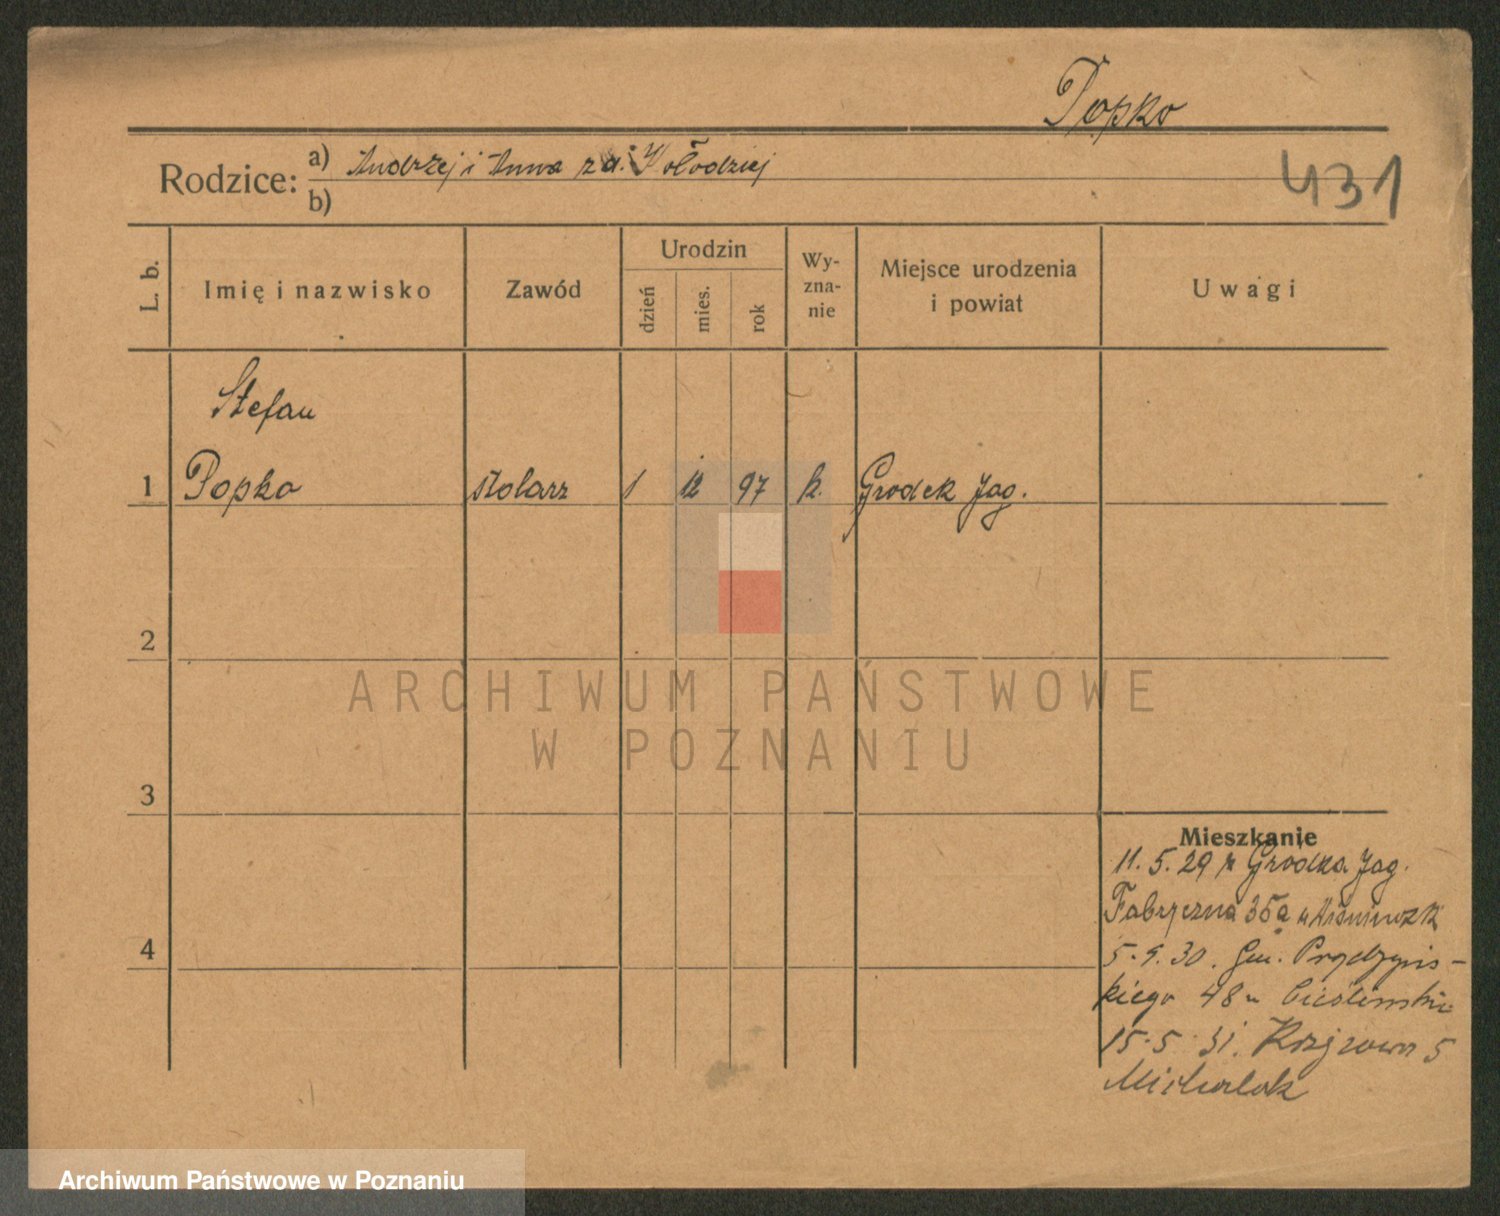 Popko
Rodzice: a) Andrzej i Anna z d. Kołodziej
b)
431
L. b. Imię i nazwisko Zawód Urodzin dzień mies. rok Wy-zna-nie Miejsce urodzenia i powiat Uwagi
Stefan
1 Popko stolarz 1 12 97 k. Grodek Jag.
2
ARCHIWUM PAŃSTWOWE
W POZNANIU
3
Mieszkanie
11.5.29 z Grodka Jag.
Fabryczna 35a u
4
5.9.30. Gen. Prądzyńs-
kiego 48 u
15.5.31. 5
Michalak
Archiwum Państwowe w Poznaniu